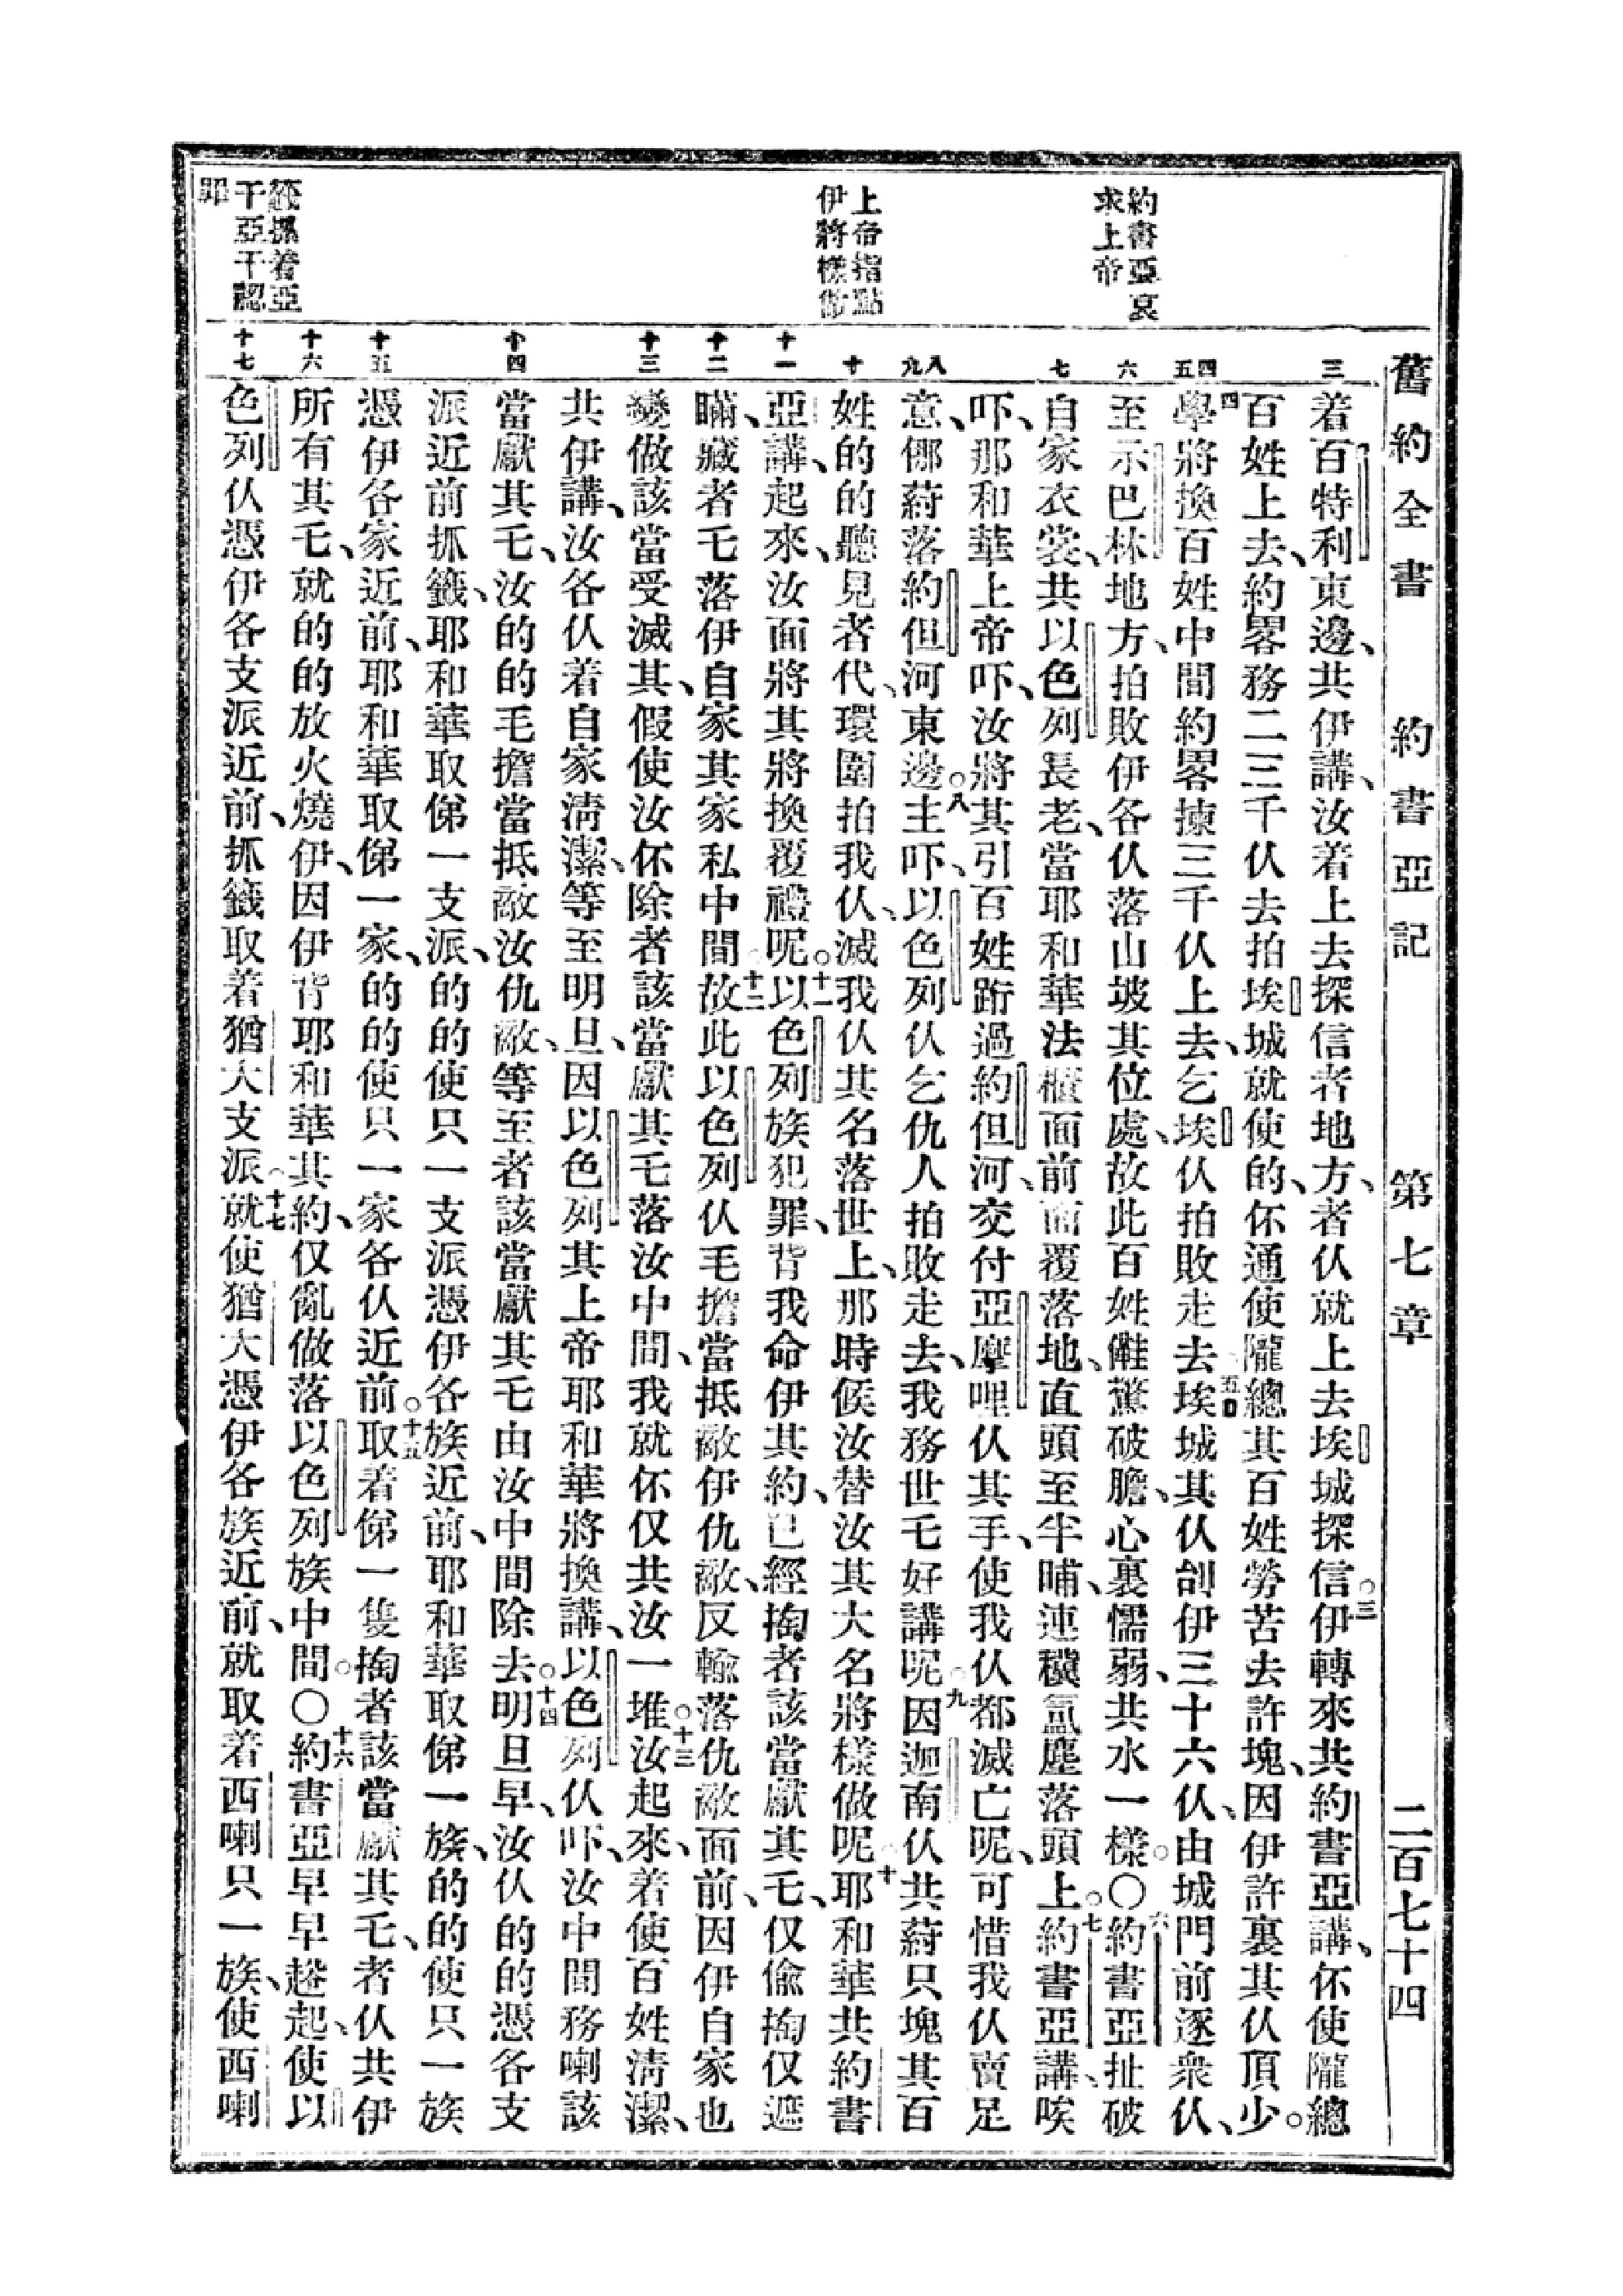 舊約全書 約書亞記 第七章 二百七十四
約書亞哀
求上帝
上帝指點
伊將樣做
籤抓着亞
干亞干認
罪
三 四 五 六 七 八 九 十 十一 十二 十三 十四 十五 十六 十七
着百特利東邊、共伊講、汝着上去探信者地方、者仈就上去埃城探信。三伊轉來共約書亞講、伓使隴總
百姓上去、約畧務二三千仈去拍埃城就使的、伓通使隴總其百姓勞苦去許塊、因伊許裏其仈頂少。
四學將換百姓中間約畧揀三千仈上去、乞埃仈拍敗走去。五埃城其仈刣伊三十六仈、由城門前逐衆仈、
至示巴林地方、拍敗伊各仈落山坡其位處、故此百姓𨿽驚破膽、心裏懦弱、共水一樣。〇六約書亞扯破
自家衣裳、共以色列長老、當耶和華法櫃面前面覆落地、直頭至半晡、連穰氳塵落頭上。七約書亞講、唉
吓、那和華上帝吓、汝將其引百姓跻過約但河、交付亞摩哩仈其手、使我仈都滅亡呢、可惜我仈賣足
意、傛蒔落約但河東邊。八主吓、以色列仈乞仇人拍敗走去、我務世乇好講呢。九因迦南仈共蒔只塊其百
姓的的聽見者代、環圍拍我仈、滅我仈其名落世上、那時候汝替汝其大名將樣做呢。十耶和華共約書
亞講、起來、汝面將其將換覆禮呢。十一以色列族犯罪、背我命伊其約、已經掏者該當獻其乇、仅偸掏仅遮
瞞、藏者乇落伊自家其家私中間、十二故此以色列仈乇擔當抵敵伊仇敵、反輸落仇敵面前、因伊自家也
變做該當受滅其、假使汝伓除者該當獻其乇落汝中間、我就伓仅共汝一堆。十三汝起來、着使百姓清潔、
共伊講、汝各仈着自家清潔、等至明旦、因以色列其上帝耶和華將換講、以色列仈吓、汝中間務喇該
當獻其乇、汝的的乇擔當抵敵汝仇敵、等至者該當獻其乇由汝中間除去。十四明旦早、汝仈的的憑各支
派近前抓籤、耶和華取俤一支派、的的使只一支派憑伊各族近前、耶和華取俤一族、的的使只一族
憑伊各家近前、耶和華取俤一家、的的使只一家各仈近前。十五取着俤一隻掏者該當獻其乇、者仈共伊
所有其乇、就的的放火燒伊、因伊背耶和華其約、仅亂做落以色列族中間。〇十六約書亞早早趮起、使以
色列仈憑伊各支派近前、抓籤取着猶大支派。十七就使猶大憑伊各族近前、就取着西喇只一族、使西喇